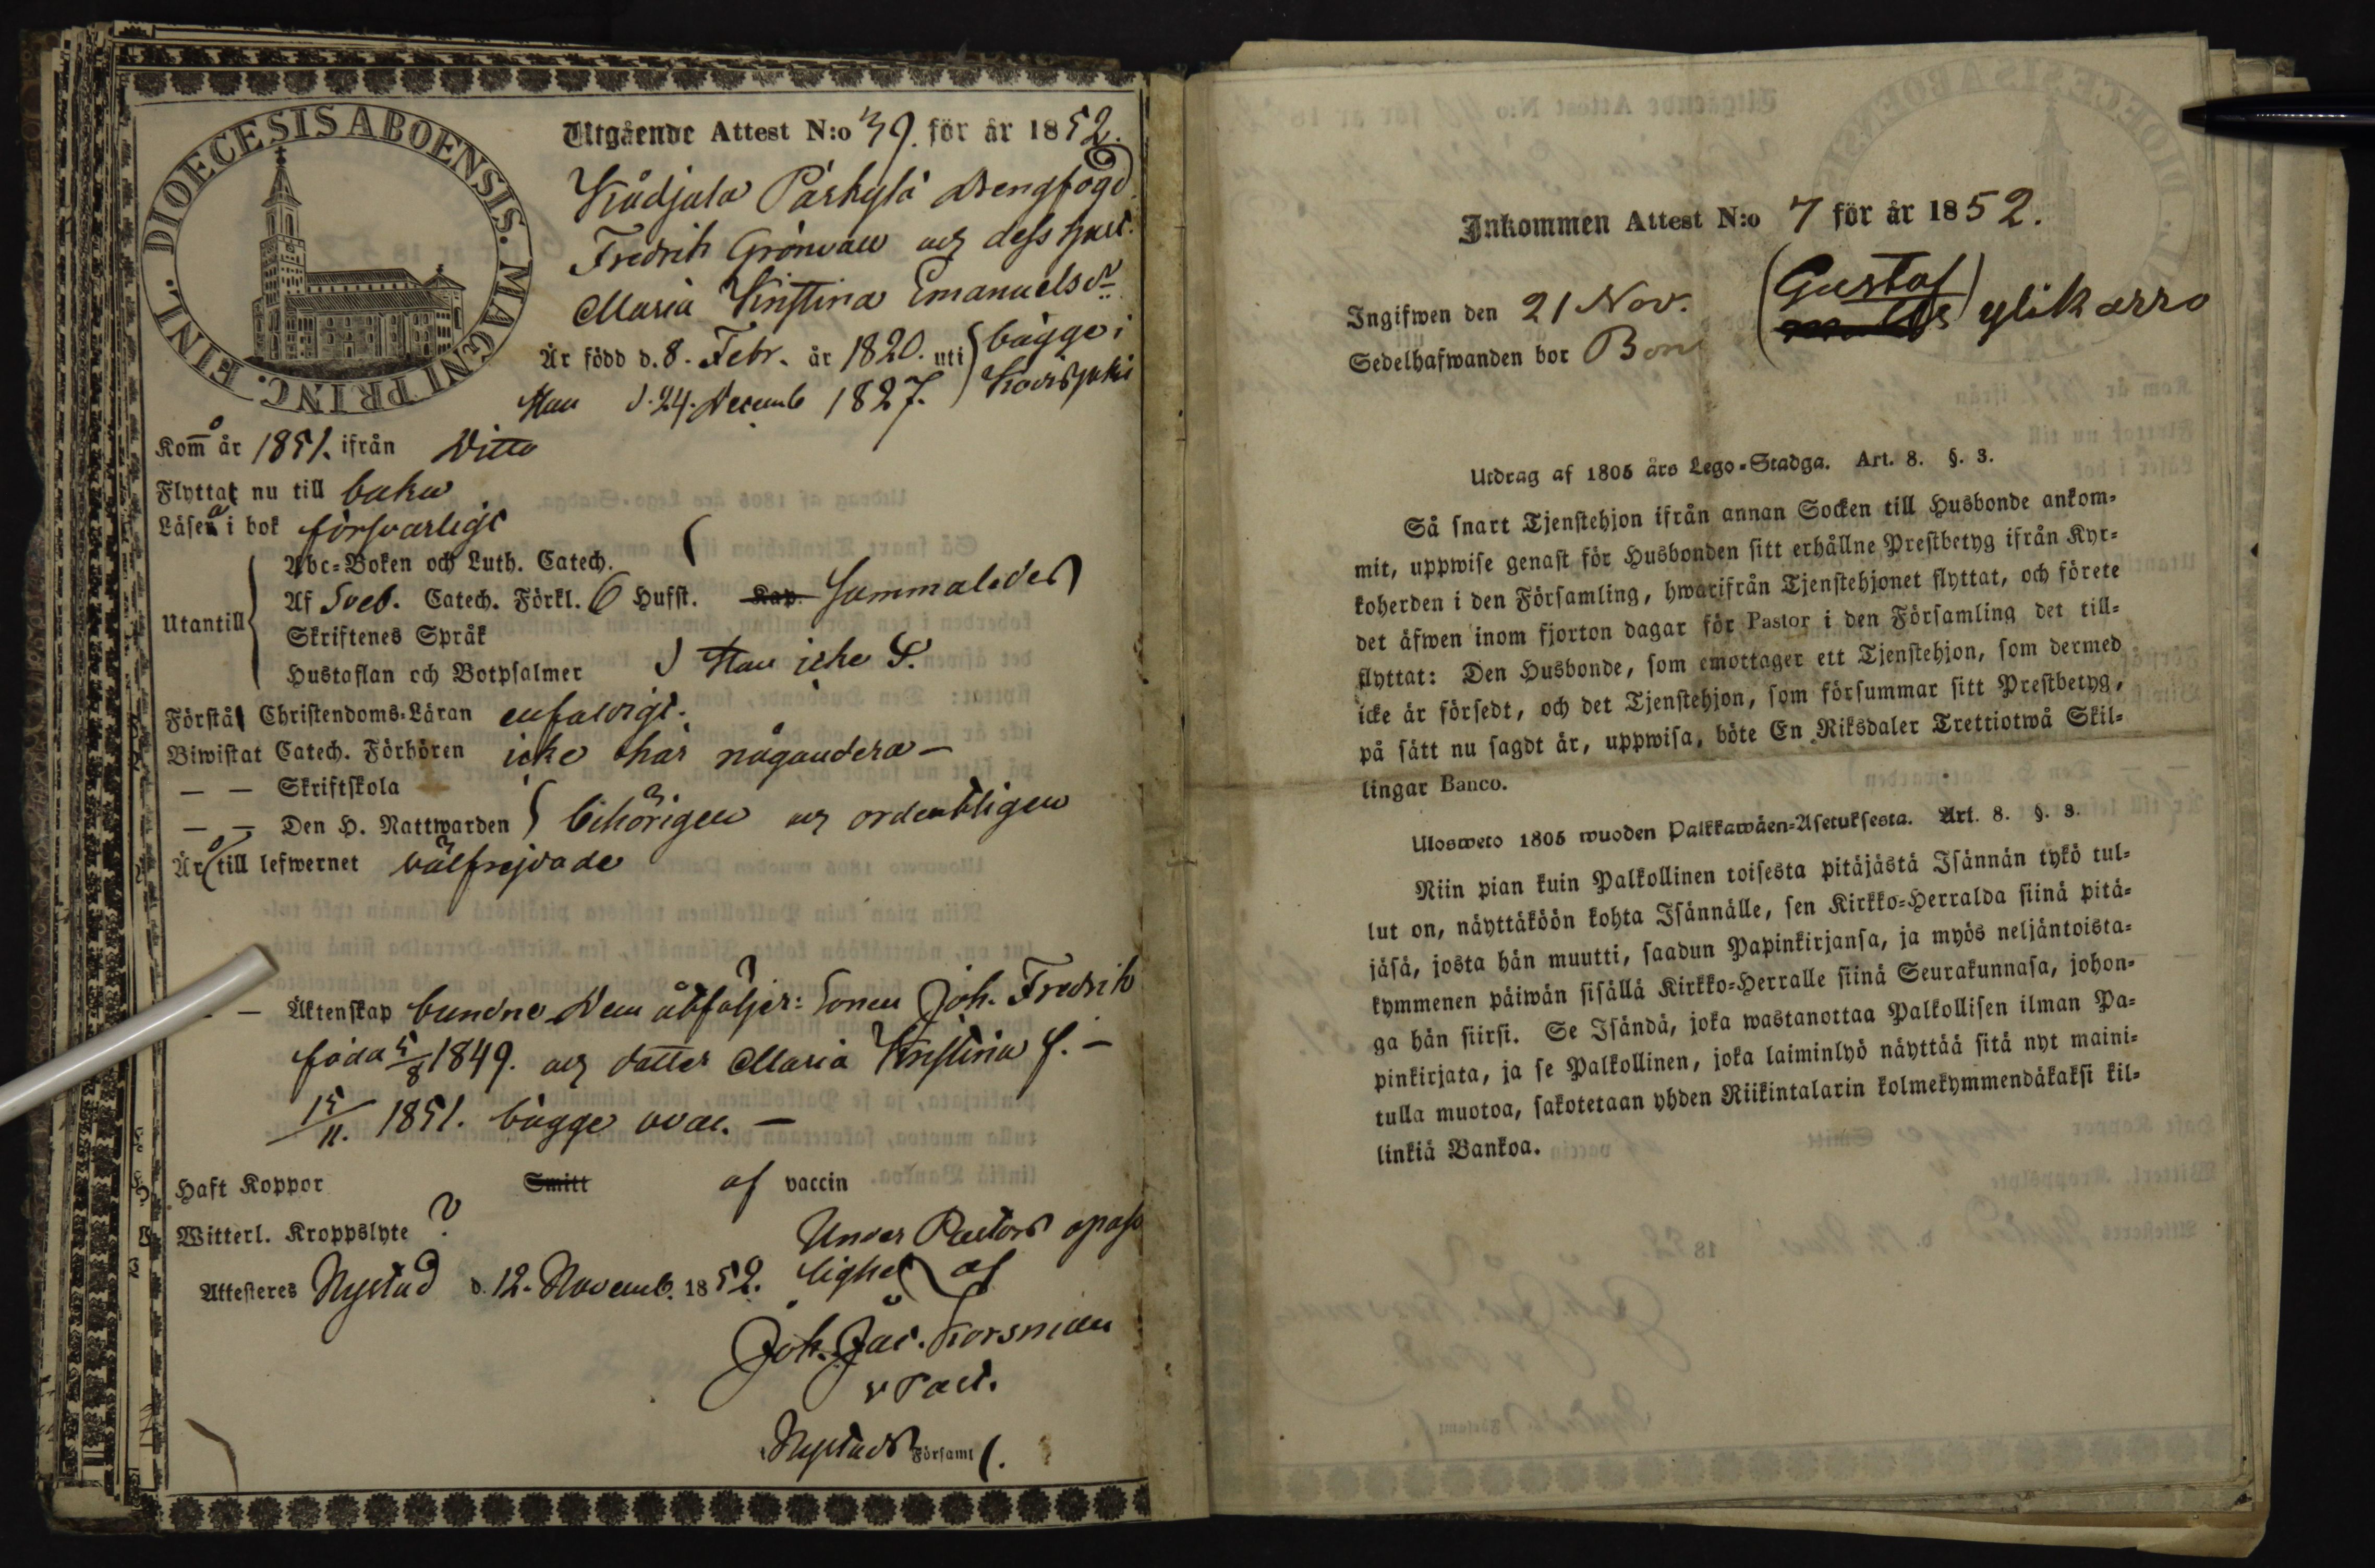 DIOECESIS ABOENSIS. MAGNI PRINC. FINL.
Utgående Attest N:o 39. för år 1852.
Kådjala Pärkylä Drengfogd
Fredrik Grönvall och dess hust.
Maria Kristina Emanuelsdr
Är född d. 8. Febr. år 1820. uti bägge i
Han d. 24. Decemb 1827.
Kom̅ år 1851. ifrån Ditto
Flyttat nu till
Läsen i bok försvarligt
Abc-Boken och Luth. Catech.
Af Sveb. Catech. Förkl. 6 Hufst. Kap. Sammaledes
Utantill
Skriftenes Språk
Hustaflan och Botpsalmer Han icke S.
Förstå Christendoms-Läran enfaldigt.
Biwistat Catech. Förhören icke här någondera —
— — Skriftskola
— — Den H. Nattwarden behörigen och ordentligen
Är till lefwernet välfrejdade
— Äktenskap bundne. Dem åtföljer: Sonen Joh. Fredrik
föda 5/8 1849. och dotter Maria Kristina f. —
15/11. 1851. bägge ovac. —
Haft Koppor Smitt af vaccin
Witterl. Kroppslyte ?
Under Pastors opass
Attesteres Nystad d. 12. Novemb. 1852. lighet af
Joh. Jac. Forsman
v Past.
Nystads Församl.
Inkommen Attest N:o 7 för år 1852.
Ingifwen den 21 Nov. (Gustaf) ylikarro
Sedelhafwanden bor
Utdrag af 1805 års Lego-Stadga. Art. 8. §. 3.
Så snart Tjenstehjon ifrån annan Socken till Husbonde ankom-
mit, uppwise genast för Husbonden sitt erhållne Prestbetyg ifrån Kyr-
koherden i den Församling, hwarifrån Tjenstehjonet flyttat, och förete
det äfwen inom fjorton dagar för Pastor i den Församling det till-
flyttat: Den Husbonde, som emottager ett Tjenstehjon, som dermed
icke är försedt, och det Tjenstehjon, som försummar sitt Prestbetyg,
på sätt nu sagdt är, uppwisa, böte En Riksdaler Trettiotwå Skil-
lingar Banco.
Ulosweto 1805 wuoden Palkkawäen-Asetuksesta. Art. 8. §. 3.
Niin pian kuin Palkollinen toisesta pitäjästä Isännän tykö tul-
lut on, näyttäköön kohta Isännälle, sen Kirkko-Herralda siinä pitä-
jäsä, josta hän muutti, saadun Papinkirjansa, ja myös neljäntoista-
kymmenen päiwän sisällä Kirkko-Herralle siinä Seurakunnasa, johon-
ga hän siirsi. Se Isändä, joka wastanottaa Palkollisen ilman Pa-
pinkirjata, ja se Palkollinen, joka laiminlyö näyttää sitä nyt maini-
tulla muotoa, sakotetaan yhden Riikintalarin kolmekymmendäkaksi kil-
linkiä Bankoa.